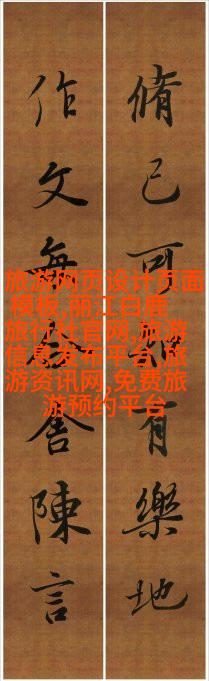 脩己可有樂地
作文無舍陳言
旅游网页设计页面
模板,丽江白鹿
旅行社官网,旅游
信息发布平台,旅
游资讯网,免费旅
游预约平台